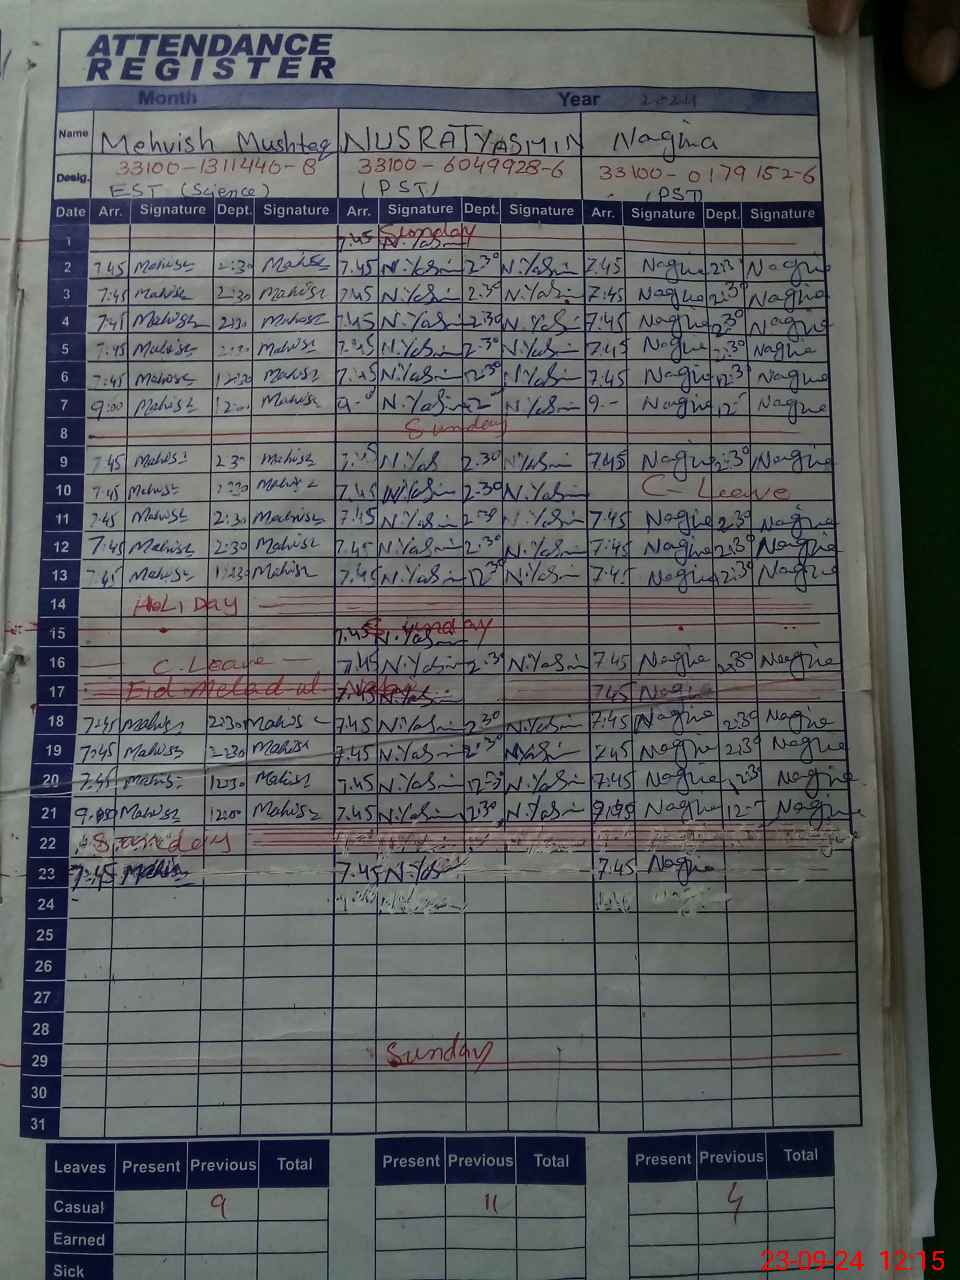 ATTENDANCE
REGISTER
Month Year 2024
Name Mehvish Mushtaq NUSRAT YASMIN Nagina
Desig. 33100-1311446-8 33100-6049928-6 33100-0179152-6
EST (Science) (PST) (PST)
Date Arr. Signature Dept. Signature Arr. Signature Dept. Signature Arr. Signature Dept. Signature
1 7.45 Sunday N.Yasin
2 7.45 2:30 7.45 N.Yasin 2.30 N.Yasin 7.45 Nagina 2:30 Nagina
3 7:45 2:30 7.45 N.Yasin 2.30 N.Yasin 7:45 Nagina 2:30 Nagina
4 7:45 2:30 7.45 N.Yasin 2:30 N.Yasin 7.45 Nagina 2:30 Nagina
5 7:45 2:30 7.45 N.Yasin 2.30 N.Yasin 7.45 Nagina 2:30 Nagina
6 7:45 12:30 7.45 N.Yasin 12:30 N.Yasin 7.45 Nagina 12:30 Nagina
7 9:00 12:00 9 N.Yasin 12 N.Yasin 9 Nagina 12 Nagina
8 Sunday
9 7:45 2:30 7.45 N.Yas 2.30 N.Yasin 7.45 Nagina 2:30 Nagina
10 7:45 2:30 7.45 N.Yasin 2.30 N.Yasin C-Leave
11 7:45 2:30 7.45 N.Yasin 2.30 N.Yasin 7.45 Nagina 2:30 Nagina
12 7:45 2:30 7.45 N.Yasin 2:30 N.Yasin 7:45 Nagina 2:30 Nagina
13 7:45 12:30 7.45 N.Yasin 12:30 N.Yasin 7:45 Nagina 12:30 Nagina
14 HoLiDay
15 7.45 Sunday N.Yasin
16 C.Leave 7.45 N.Yasin 2.30 N.Yasin 7.45 Nagina 2:30 Nagina
17 Eid Melad ul Nabi 7.45 N.Yasin 7.45 Nagina
18 7:45 2:30 7.45 N.Yasin 2.30 N.Yasin 7.45 Nagina 2:30 Nagina
19 7:45 2:30 7.45 N.Yasin 2:30 N.Yasin 7.45 Nagina 2:30 Nagina
20 7:45 12:30 7.45 N.Yasin 12:30 N.Yasin 7.45 Nagina 12:30 Nagina
21 9.00 12:00 7.45 N.Yasin 2.30 N.Yasin Nagina 12 Nagina
22 Sunday
23 7:45 7.45 N.Yas 7.45 Nagina
24
25
26
27
28
29 Sunday
30
31
Leaves Present Previous Total Present Previous Total Present Previous Total
Casual 9 11 4
Earned
Sick
23-09-24 12:15